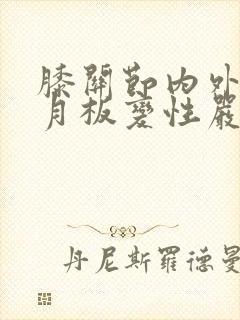 膝關節內外
月板變性嚴
丹尼斯羅德曼